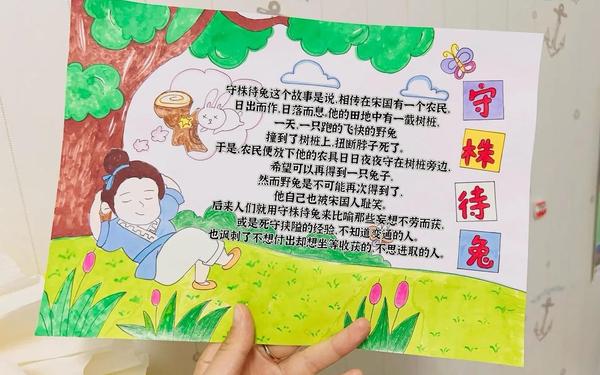 守株待兔
守株待兔这个故事是说,相传在宋国有一个农民,
日出而作,日落而息,他的田地中有一截树桩,
一天,一只跑的飞快的野兔
撞到了树桩上,扭断脖子死了。
于是,农民便放下他的农具日日夜夜守在树桩旁边,
希望可以再得到一只兔子,
然而野兔是不可能再次得到了,
他自己也被宋国人耻笑。
后来人们就用守株待兔来比喻那些妄想不劳而获,
或是死守狭隘的经验,不知道变通的人。
也讽刺了不想付出却想坐等收获的,不思进取的人。